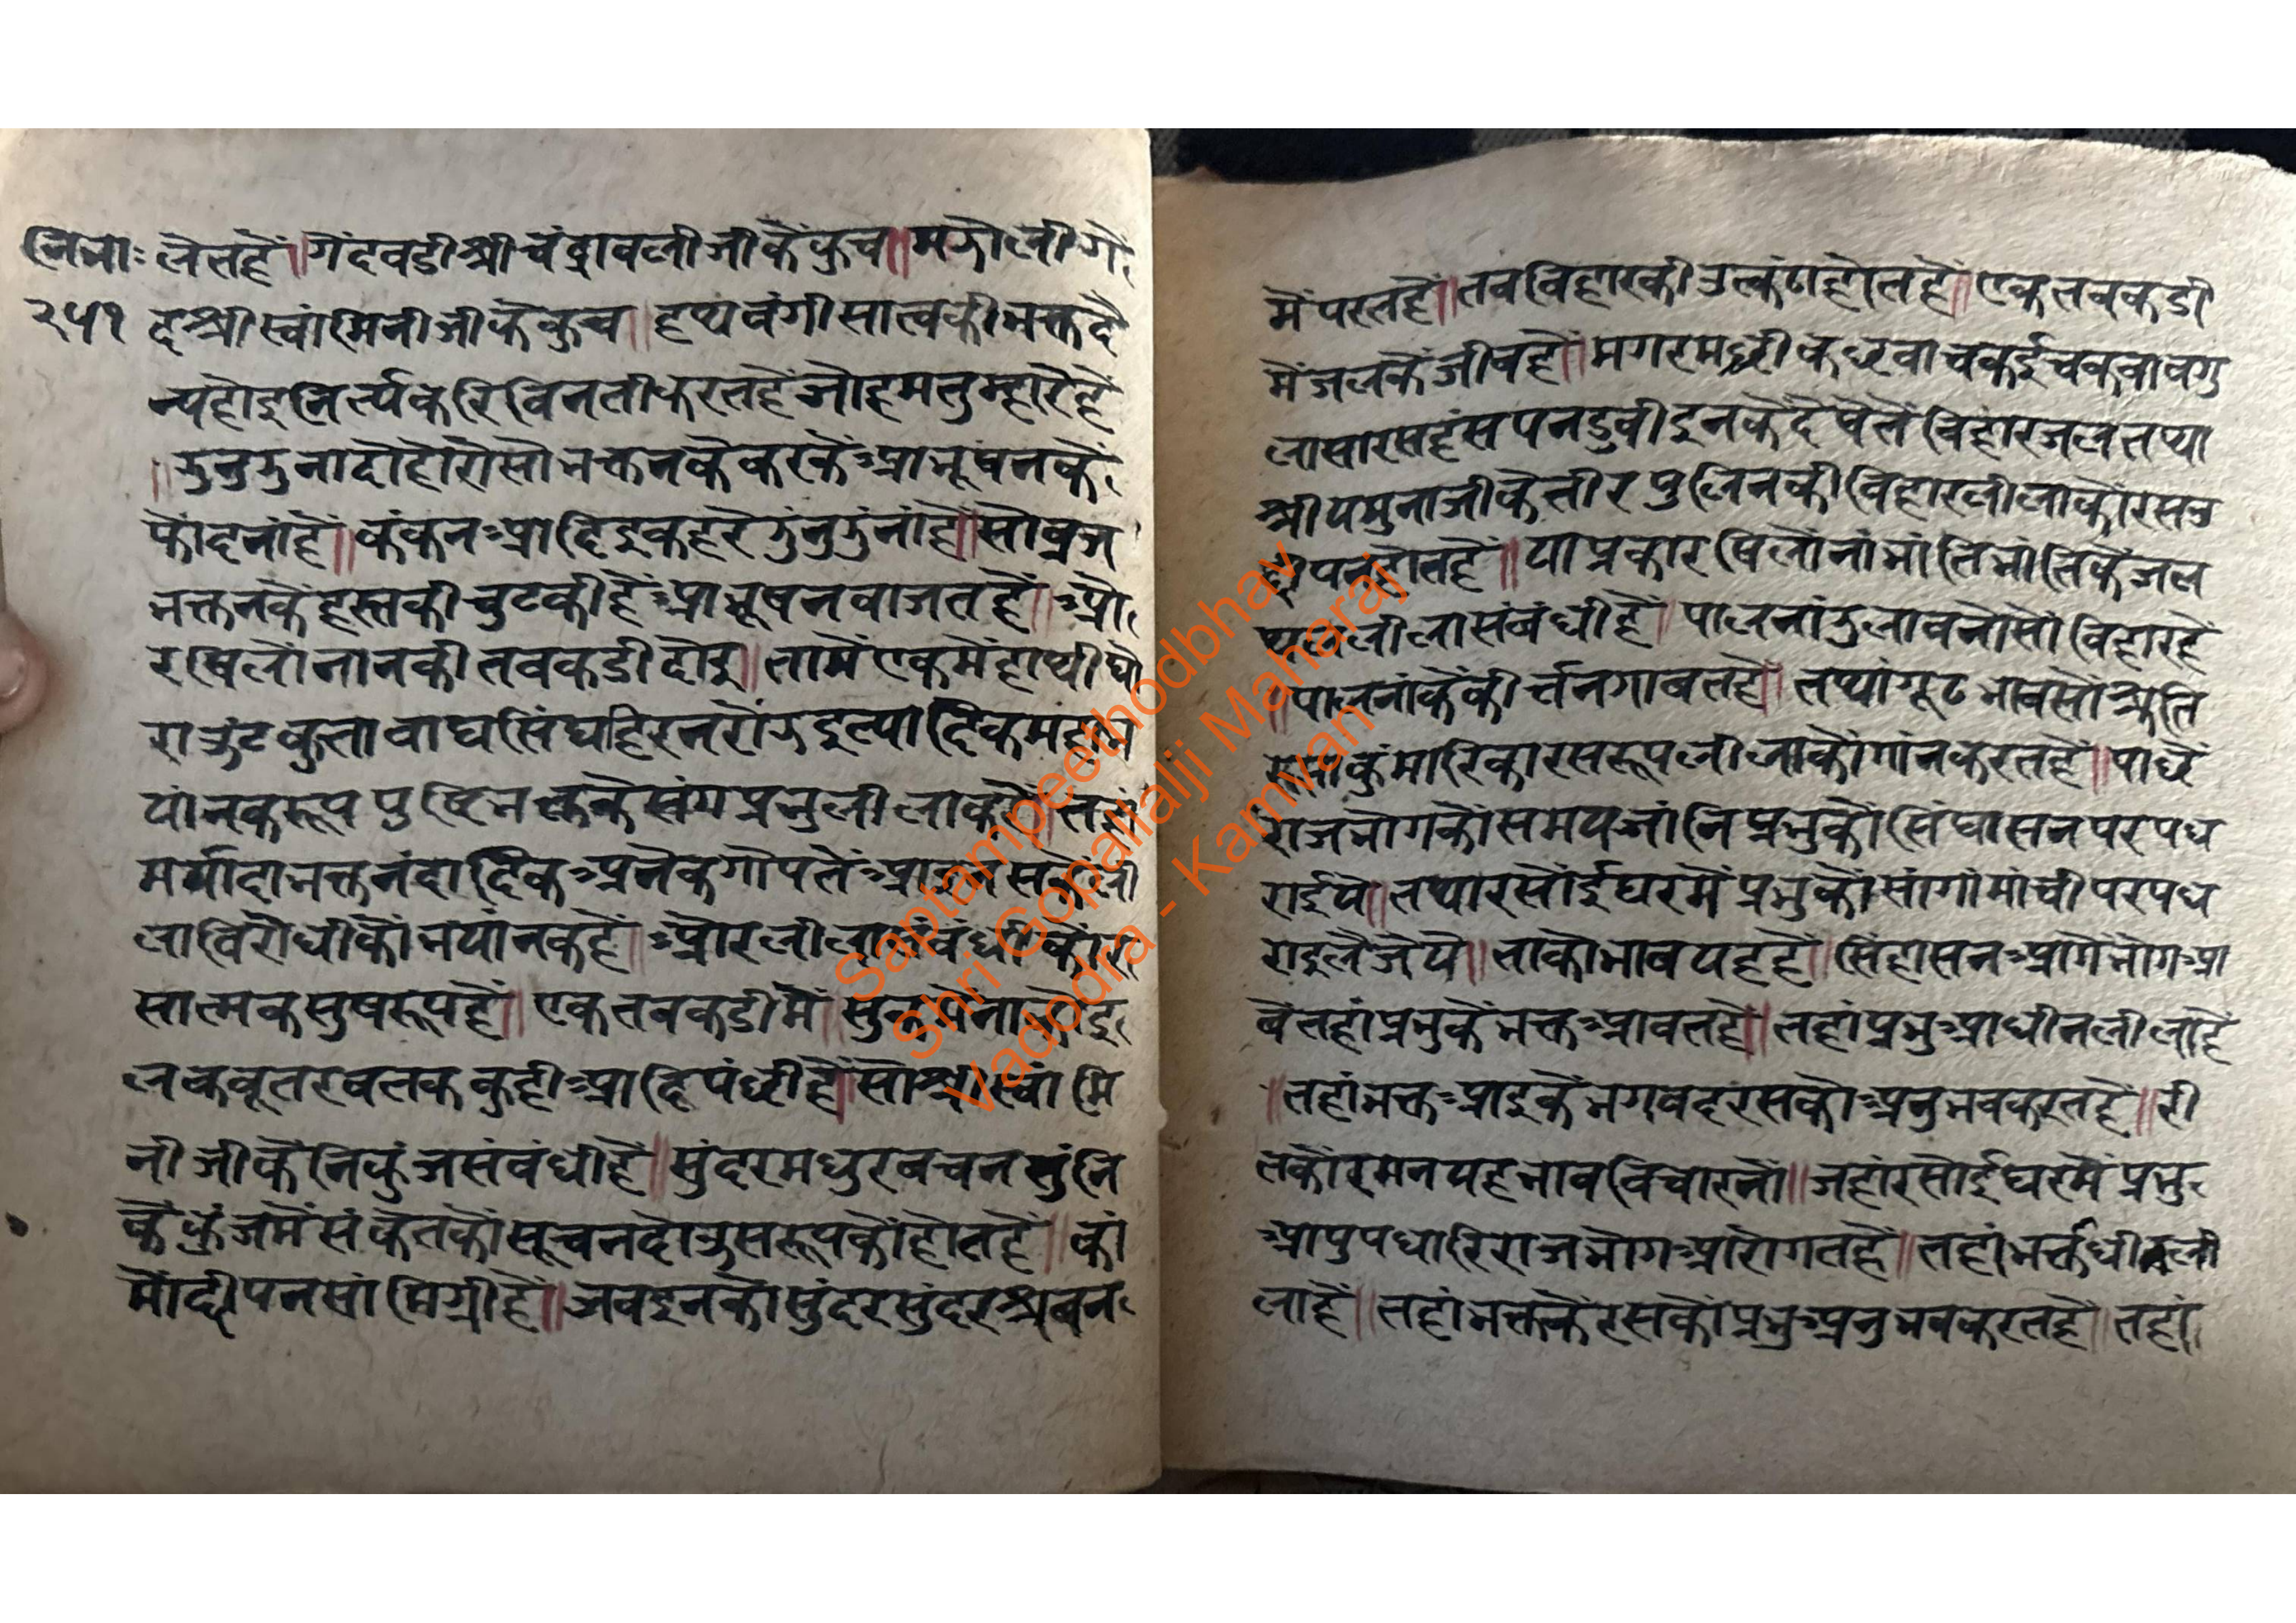 नि भा:
२५१
लेतहैं॥गेंदबडीश्रीचंद्रावलीजीकेकुच॥मझोलीगें
दश्रीस्वांमिनीजीकेकुच॥हथ्यवंगीसात्वकीभक्तदै
न्यहोइनिर्त्यकरिविनतीकरतहैंजोहमतुम्हारेहैं
॥झुनुझुनादोहोरोसोभक्तनकेकरकेंआभूषनकें
कोंदनांहैं॥कंकनआदिइकहरेझुंनुझुंनांहै॥सोब्रज
भक्तनकेंहस्तकीचुटकीहैंआभूषनबाजतहैं॥ओ
रखिलोंनानकीतबकडीदोइ॥तामेंएकमेंहाथीघो
राऊंटकुत्तावाघसिंघहिरनरोझइत्यादिकमहाभ
यांनकरूपपुष्टिभक्तकेसंगप्रभुलीलाकरें॥तहां
मर्यादाभक्तनंदादिकअनेकगोपतें
लाविरोधीकोंभयांनकहैं॥ओरलीला
सात्मकसुषरूपहैं॥एकतबकडीमें॥सुक
लकबूतरबतककुहीआदिपंछीहैं॥सोश्रीस्वांमि
नीजीकेनिकुंजसंबंधीहैं॥सुंदरमधुरबचनसुंनि
केंकुंजमेंसंकेतकोंसूचनदोऊसरूपकोंहोतहैं॥कां
मोद्दीपनसांमिग्रीहैं॥जबइनकोसुंदरसुंदरश्रबन
मेंपरतहैं॥तबविहारकीउत्कंठाहोतहैं॥एकतबकडी
मेंजलकेंजीवहैं॥मगरमछीकछवाचकईचकवाबगु
लासारसहंसपनडुबीइनकेदेषेतेंविहारजलतथा
श्रीयमुनाजीकेतीरपुलिनकीविहारलीलाकोंरसउ
द्दीपनहोतहैं॥याप्रकारखिलोंनांभांतिभांतिकेंजल
थललीलासंबंधीहैं॥पालनांझुलावनोसोविहारहैं
॥पालनांकेंकीर्त्तनगाबतहै॥तथांगूढभावसोश्रुति
रूपाकुंमारिकारसरूपलीलाकोंगांनकरतहैं॥पाछें
राजभोगकोंसमयजांनिप्रभुकोंसिंघासनपरपध
राईये॥तथारसोंईघरमेंप्रभुकोंसांगांमांचीपरपध
राइलेजैये॥ताकोभावयहहैं॥सिंहासनआगेंभोगआ
वेंतहांप्रभुकेंभक्तआवतहै॥तहांप्रभुआधीनलीलाहैं
॥तहांभक्तआइकेंभगवदरसकोअनुभवकरतहैं॥री
तकोंरमनयहभावविचारनों॥जहांरसोईघरमेंप्रभु
आपुपधारिराजभोगआरोगतहैं॥तहांभर्क्ताधीनली
लाहैं॥तहांभक्तकेंरसकोंप्रभुअनुभवकरतहैं॥तहां
Saptampeethodbhav
Shri Gopallalji Maharaj
Vadodra - Kamvan